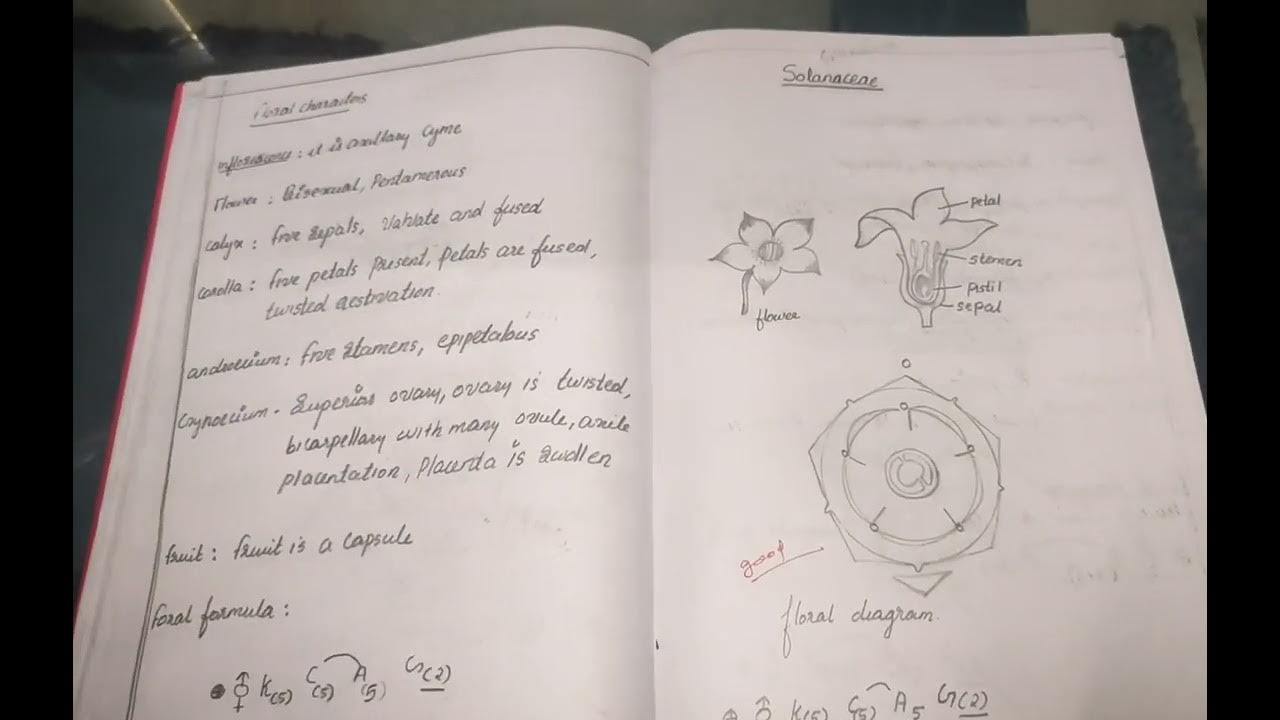 Floral characters
inflorescence : it is axillary Cyme
Flower : Bisexual, Pentamerous
calyx : five sepals, Valvate and fused
corolla : five petals present, petals are fused,
twisted aestivation.
androecium : five stamens, epipetalous
Gynoecium - Superior ovary, ovary is twisted,
bicarpellary with many ovule, axile
placentation, Placenta is swollen
fruit : fruit is a capsule
foral formula :
⚥ K(5) C(5) A(5) G(2)
Solanaceae
petal
stemen
pistil
sepal
flower
good
floral diagram.
⊕ ⚥ K(5) C(5) A5 G(2)